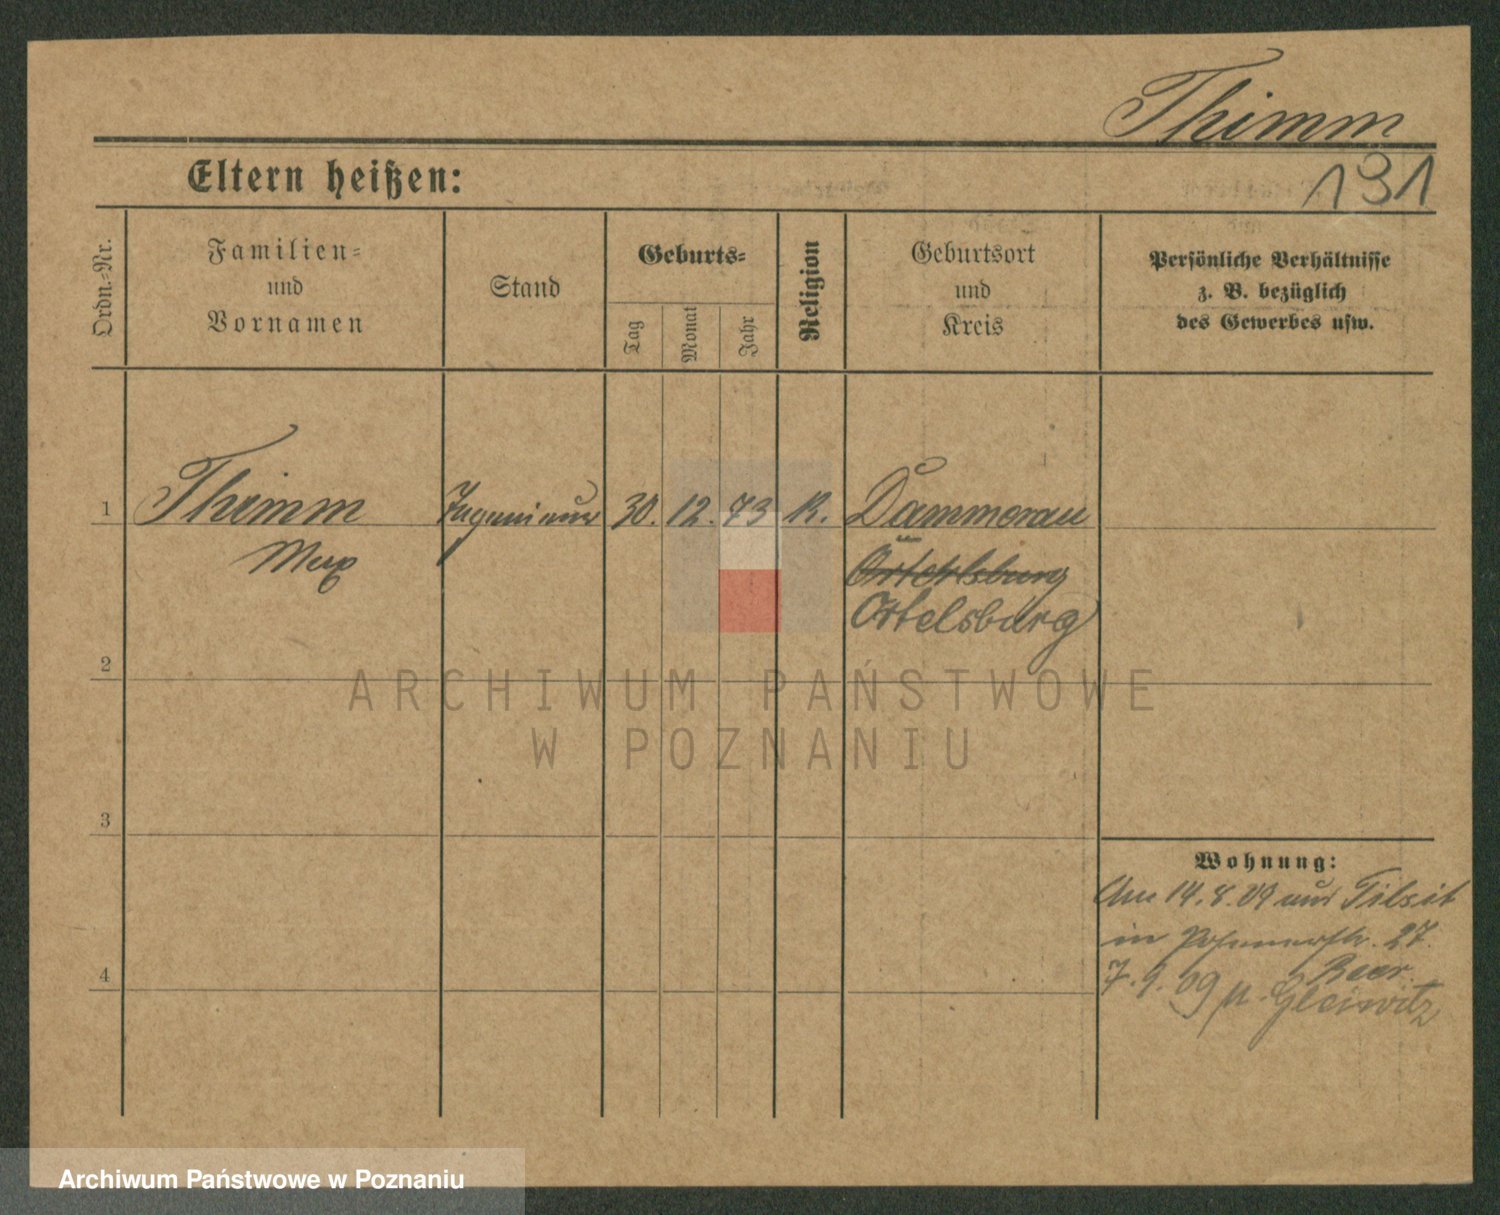 Thimm
131
Eltern heißen:
Ordn.-Nr.
Familien-
und
Vornamen
Stand
Geburts-
Tag
Monat
Jahr
Religion
Geburtsort
und
Kreis
Persönliche Verhältnisse
z. B. bezüglich
des Gewerbes usw.
1
Thimm
Max
Ingenieur
30. 12. 73
K.
Damerau
Ortelsburg
Ortelsburg
2
3
4
Wohnung:
Am 14.8.09 aus Tilsit
in 27.
7.9.09 n. Gleiwitz
ARCHIWUM PAŃSTWOWE
W POZNANIU
Archiwum Państwowe w Poznaniu